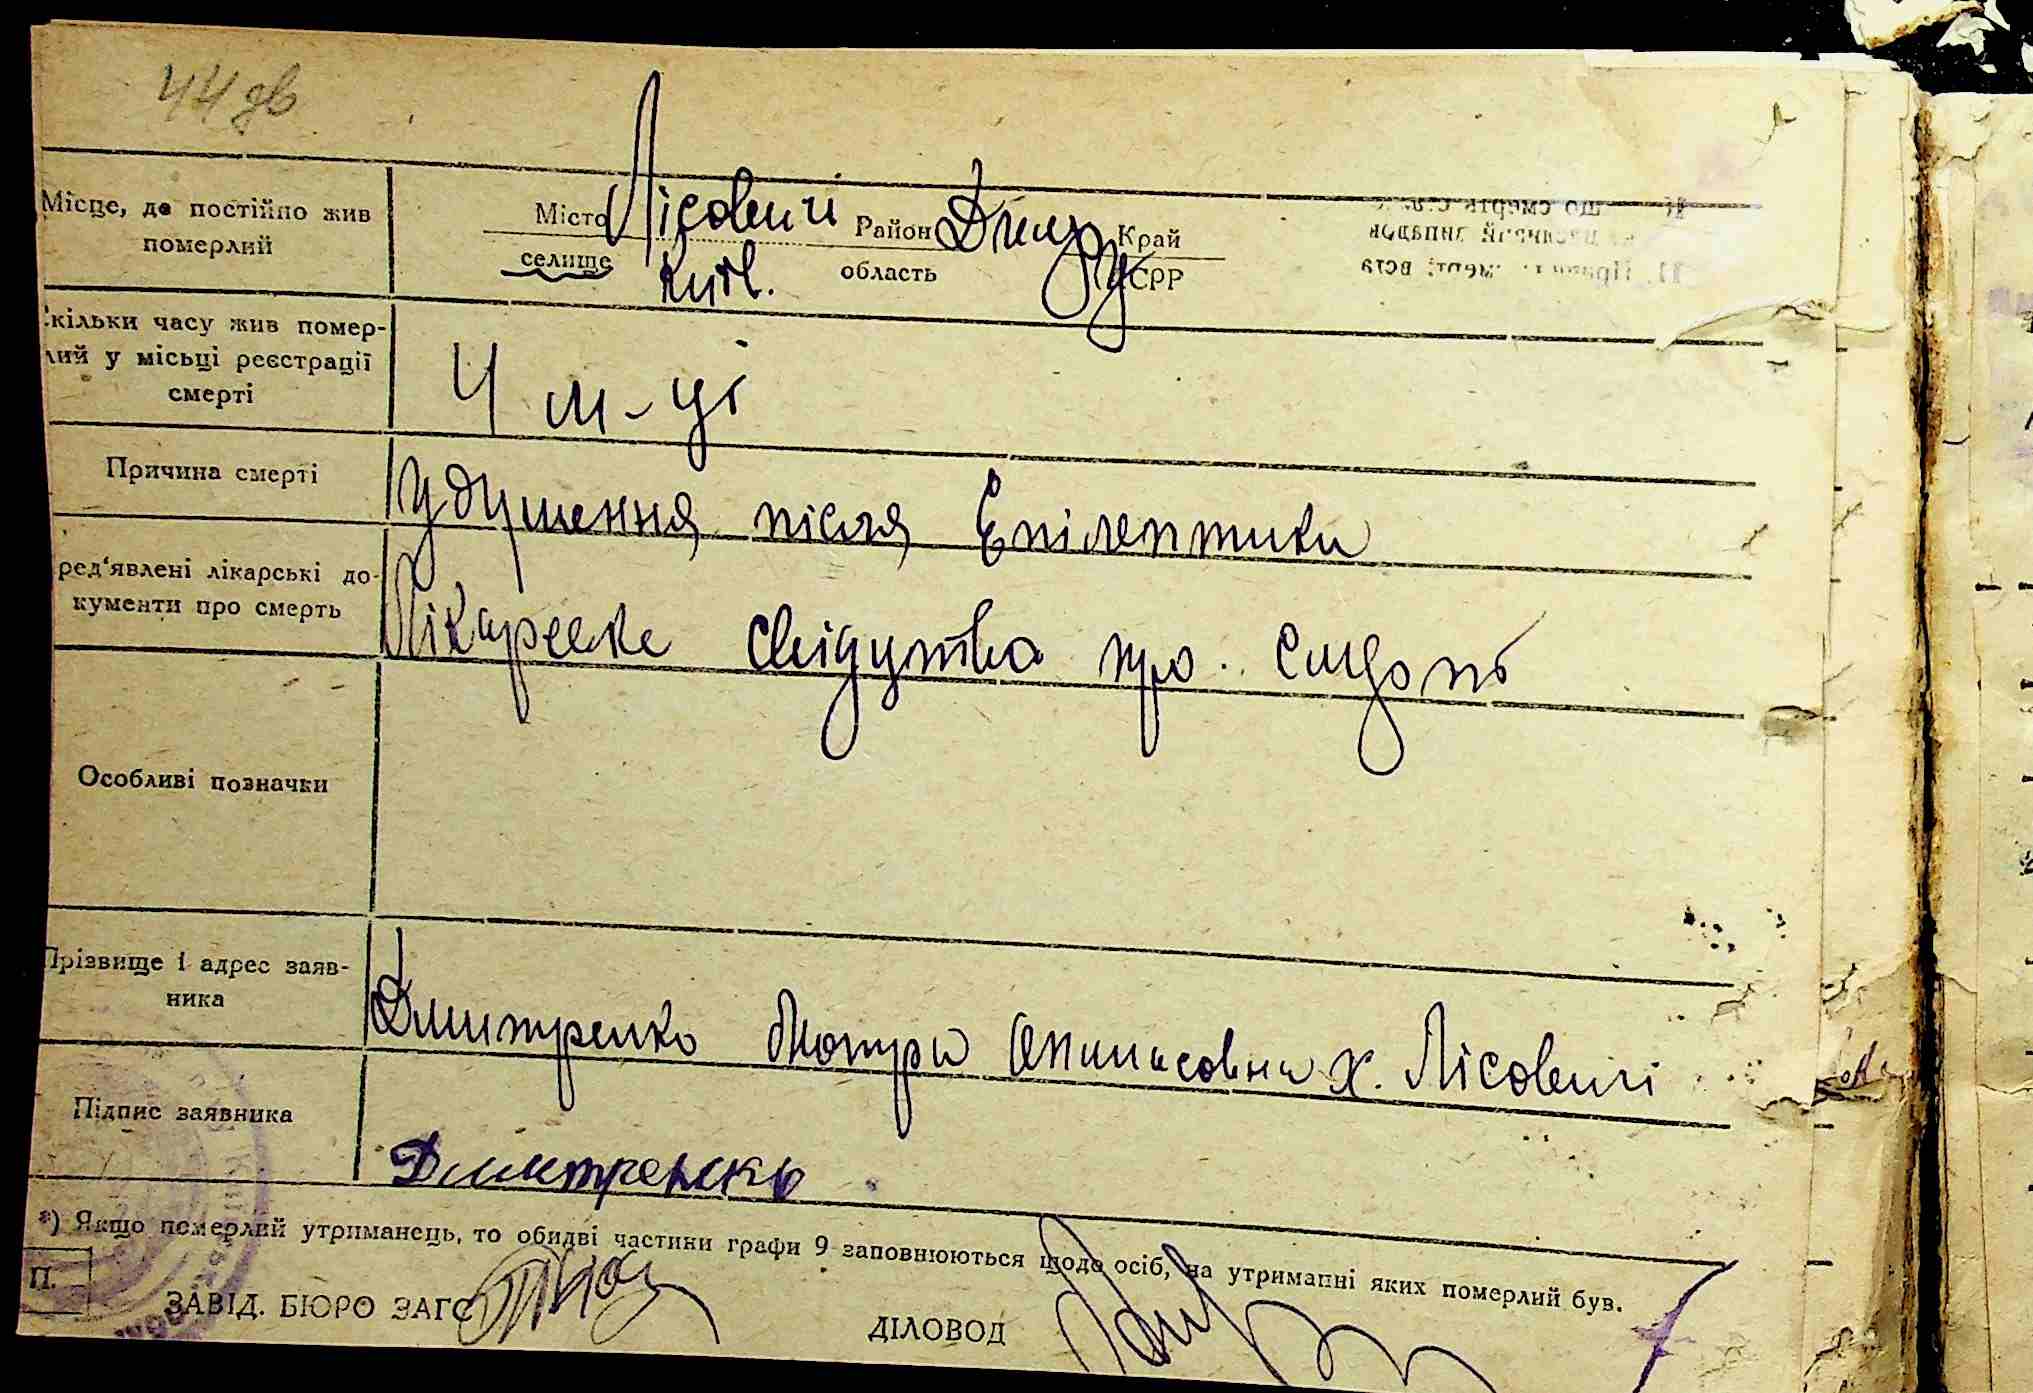 44 зв
Місце, де постійно жив
померлий
Місто Лісовичі Район Дими Край
селище Київ. область УСРР
кільки часу жив помер-
лий у місьці реєстрації
смерті
4 м-ці
Причина смерті
удушення після Епілептики
ред'явлені лікарські до-
кументи про смерть
Лікарське свідуцтва про
Особливі позначки
Прізвище і адрес заяв-
ника
Дмитренко Мотря х. Лісовичі
Підпис заявника
Дмитренко
*) Якщо померлий утриманець, то обидві частини графи 9 заповнюються щодо осіб, на утриманні яких померлий був.
П.
ЗАВІД. БЮРО ЗАГС
ДІЛОВОД